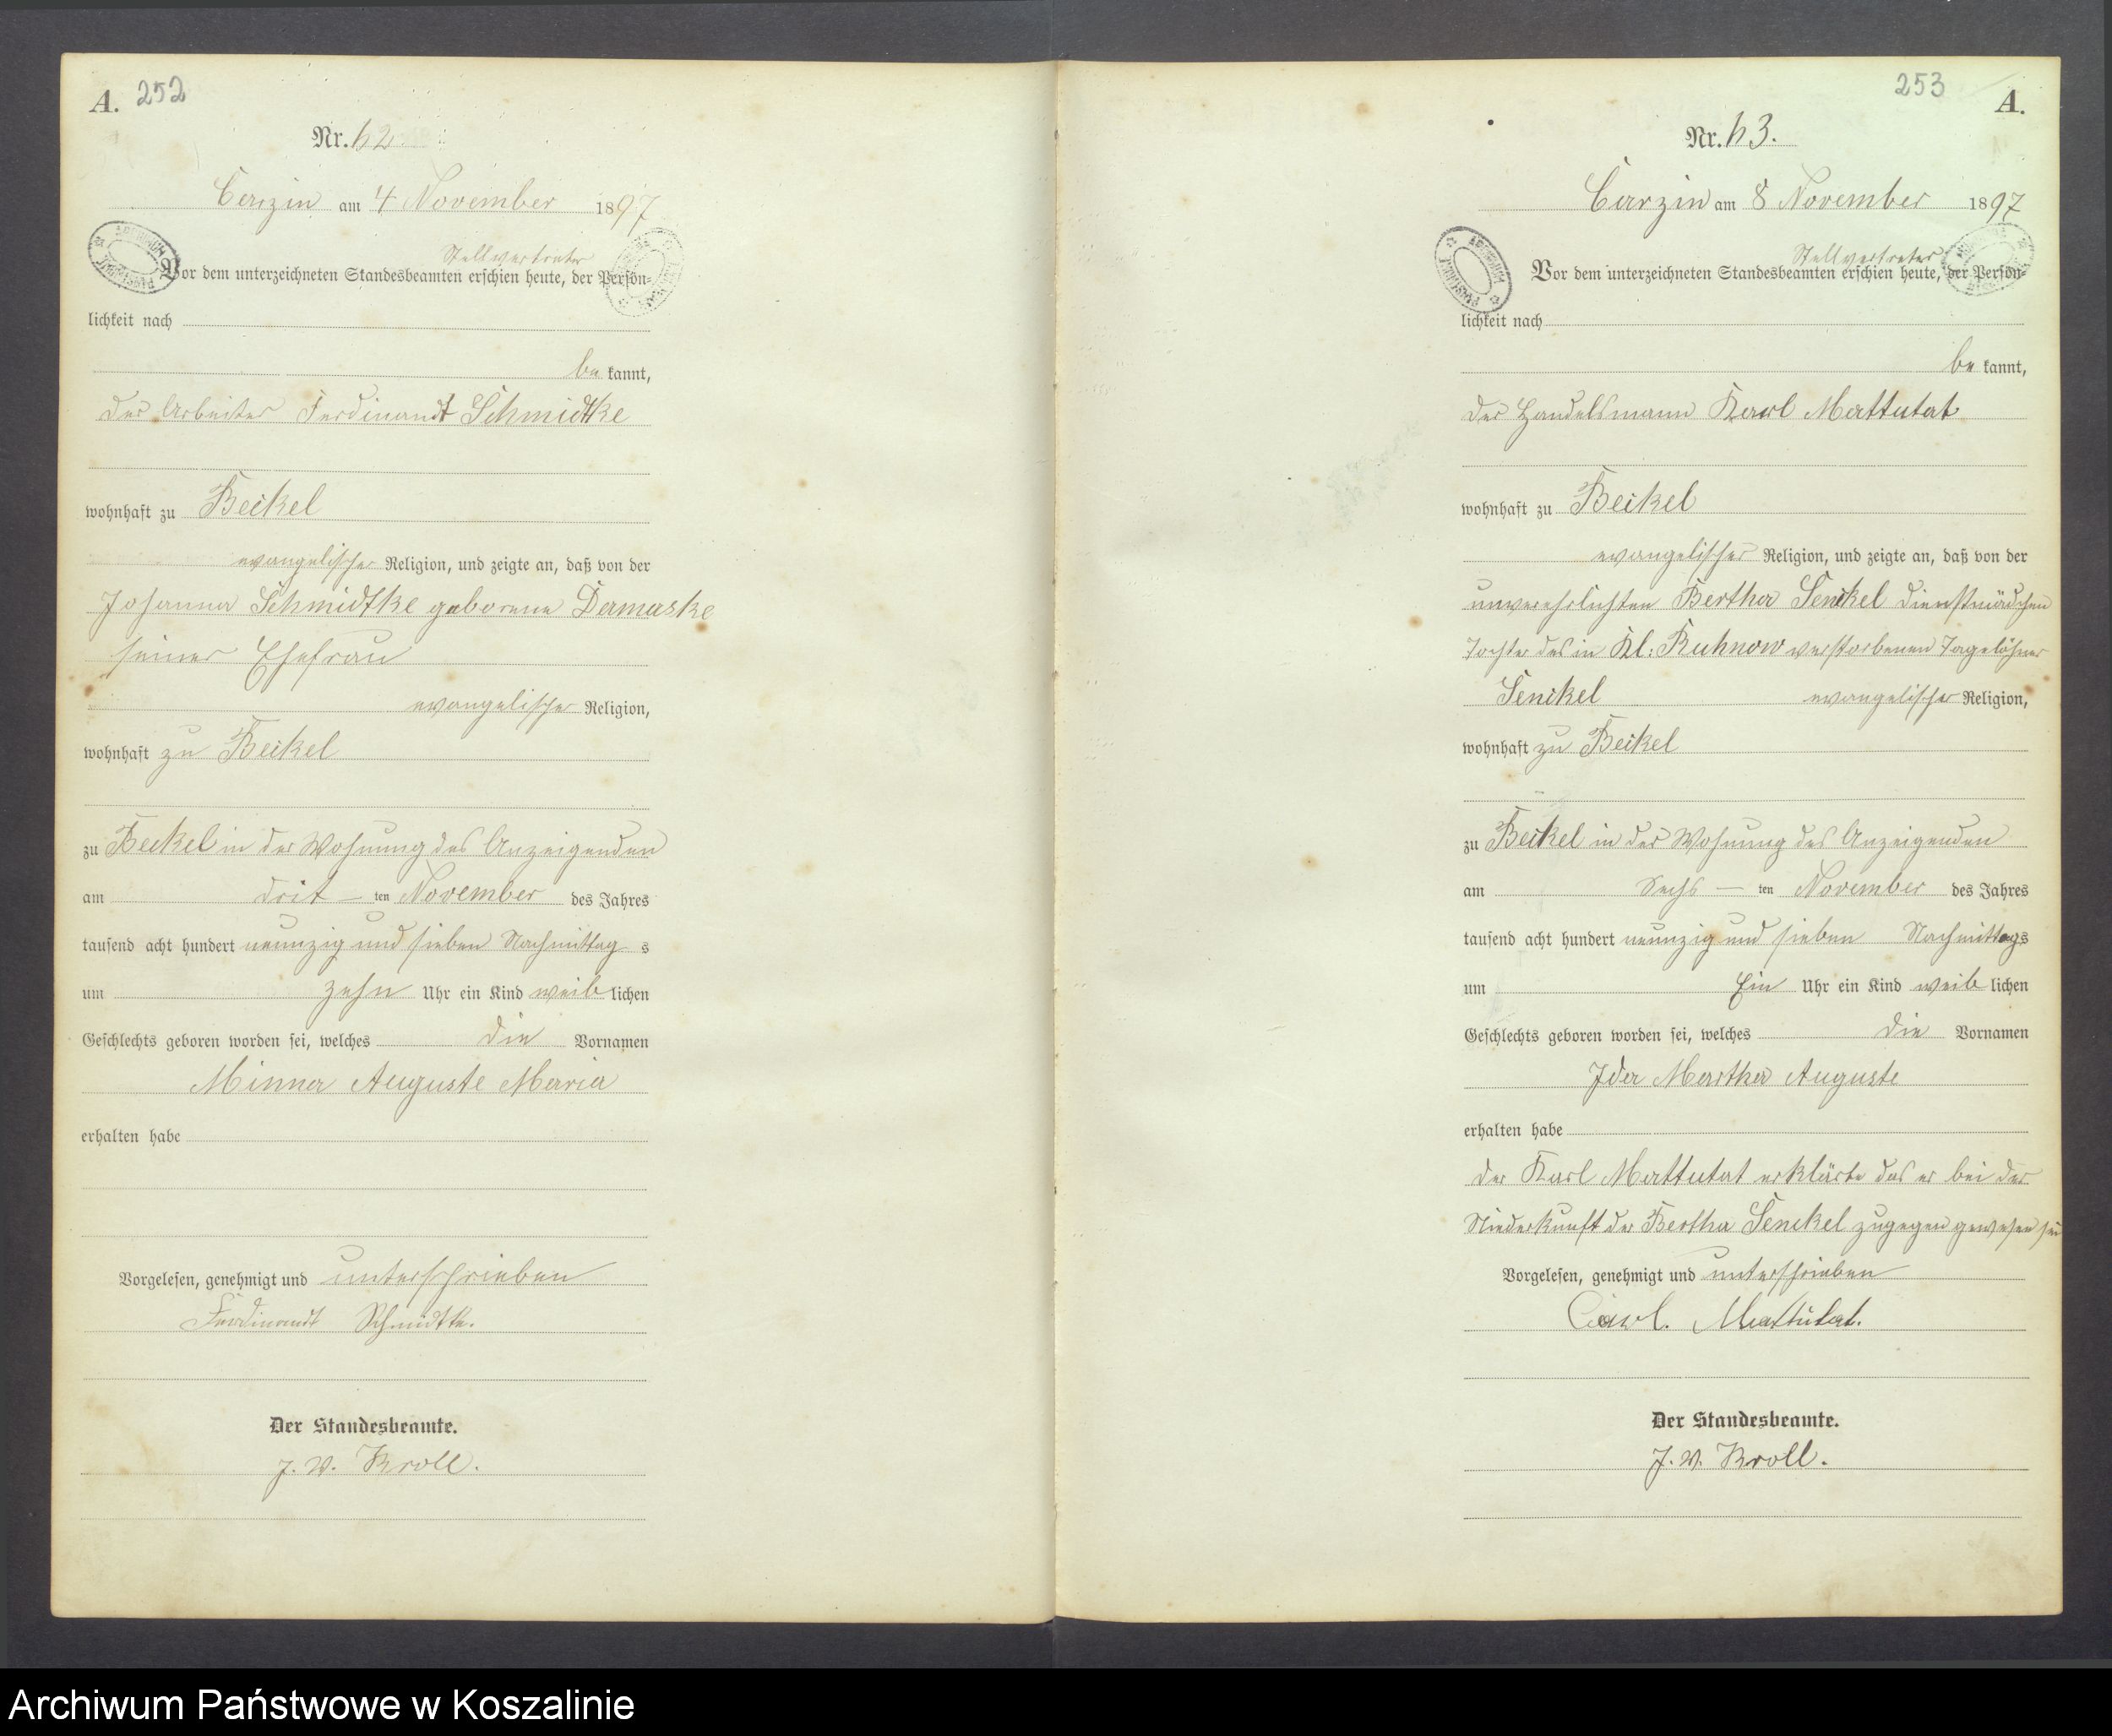 A. 252
Nr. 62.
Carzin am 4 November 1897
Stellvertreter
Vor dem unterzeichneten Standesbeamten erschien heute, der Persön-
lichkeit nach
be kannt,
der Arbeiter Ferdinandt Schmidtke
wohnhaft zu Beckel
evangelischer Religion, und zeigte an, daß von der
Johanna Schmidtke geborene Damaske
seiner Ehefrau
evangelischer Religion,
wohnhaft zu Beckel
zu Beckel in der Wohnung des Anzeigenden
am drit – ten November des Jahres
tausend acht hundert neunzig und sieben Nachmittag s
um zehn Uhr ein Kind weib lichen
Geschlechts geboren worden sei, welches die Vornamen
Minna Auguste Maria
erhalten habe
Vorgelesen, genehmigt und unterschrieben
Ferdinandt Schmidtke.
Der Standesbeamte.
J. V. Kroll.
253 A.
Nr. 63.
Carzin am 8 November 1897
Stellvertreter
Vor dem unterzeichneten Standesbeamten erschien heute, der Persön-
lichkeit nach
be kannt,
der Handelsmann Karl Mattutat
wohnhaft zu Beckel
evangelischer Religion, und zeigte an, daß von der
unverehelichten Bertha Senckel Dienstmädchen
Tochter des in Kl: Ruhnow verstorbenen Tagelöhner
Senckel evangelischer Religion,
wohnhaft zu Beckel
zu Beckel in der Wohnung des Anzeigenden
am Sechs – ten November des Jahres
tausend acht hundert neunzig und sieben Nachmittags
um Ein Uhr ein Kind weib lichen
Geschlechts geboren worden sei, welches die Vornamen
Ida Martha Auguste
erhalten habe
der Karl Mattutat erklärte das er bei der
Niederkunft der Bertha Senckel zugegen gewesen sei
Vorgelesen, genehmigt und unterschrieben
Carl. Mattutat.
Der Standesbeamte.
J. V. Kroll.
Archiwum Państwowe w Koszalinie